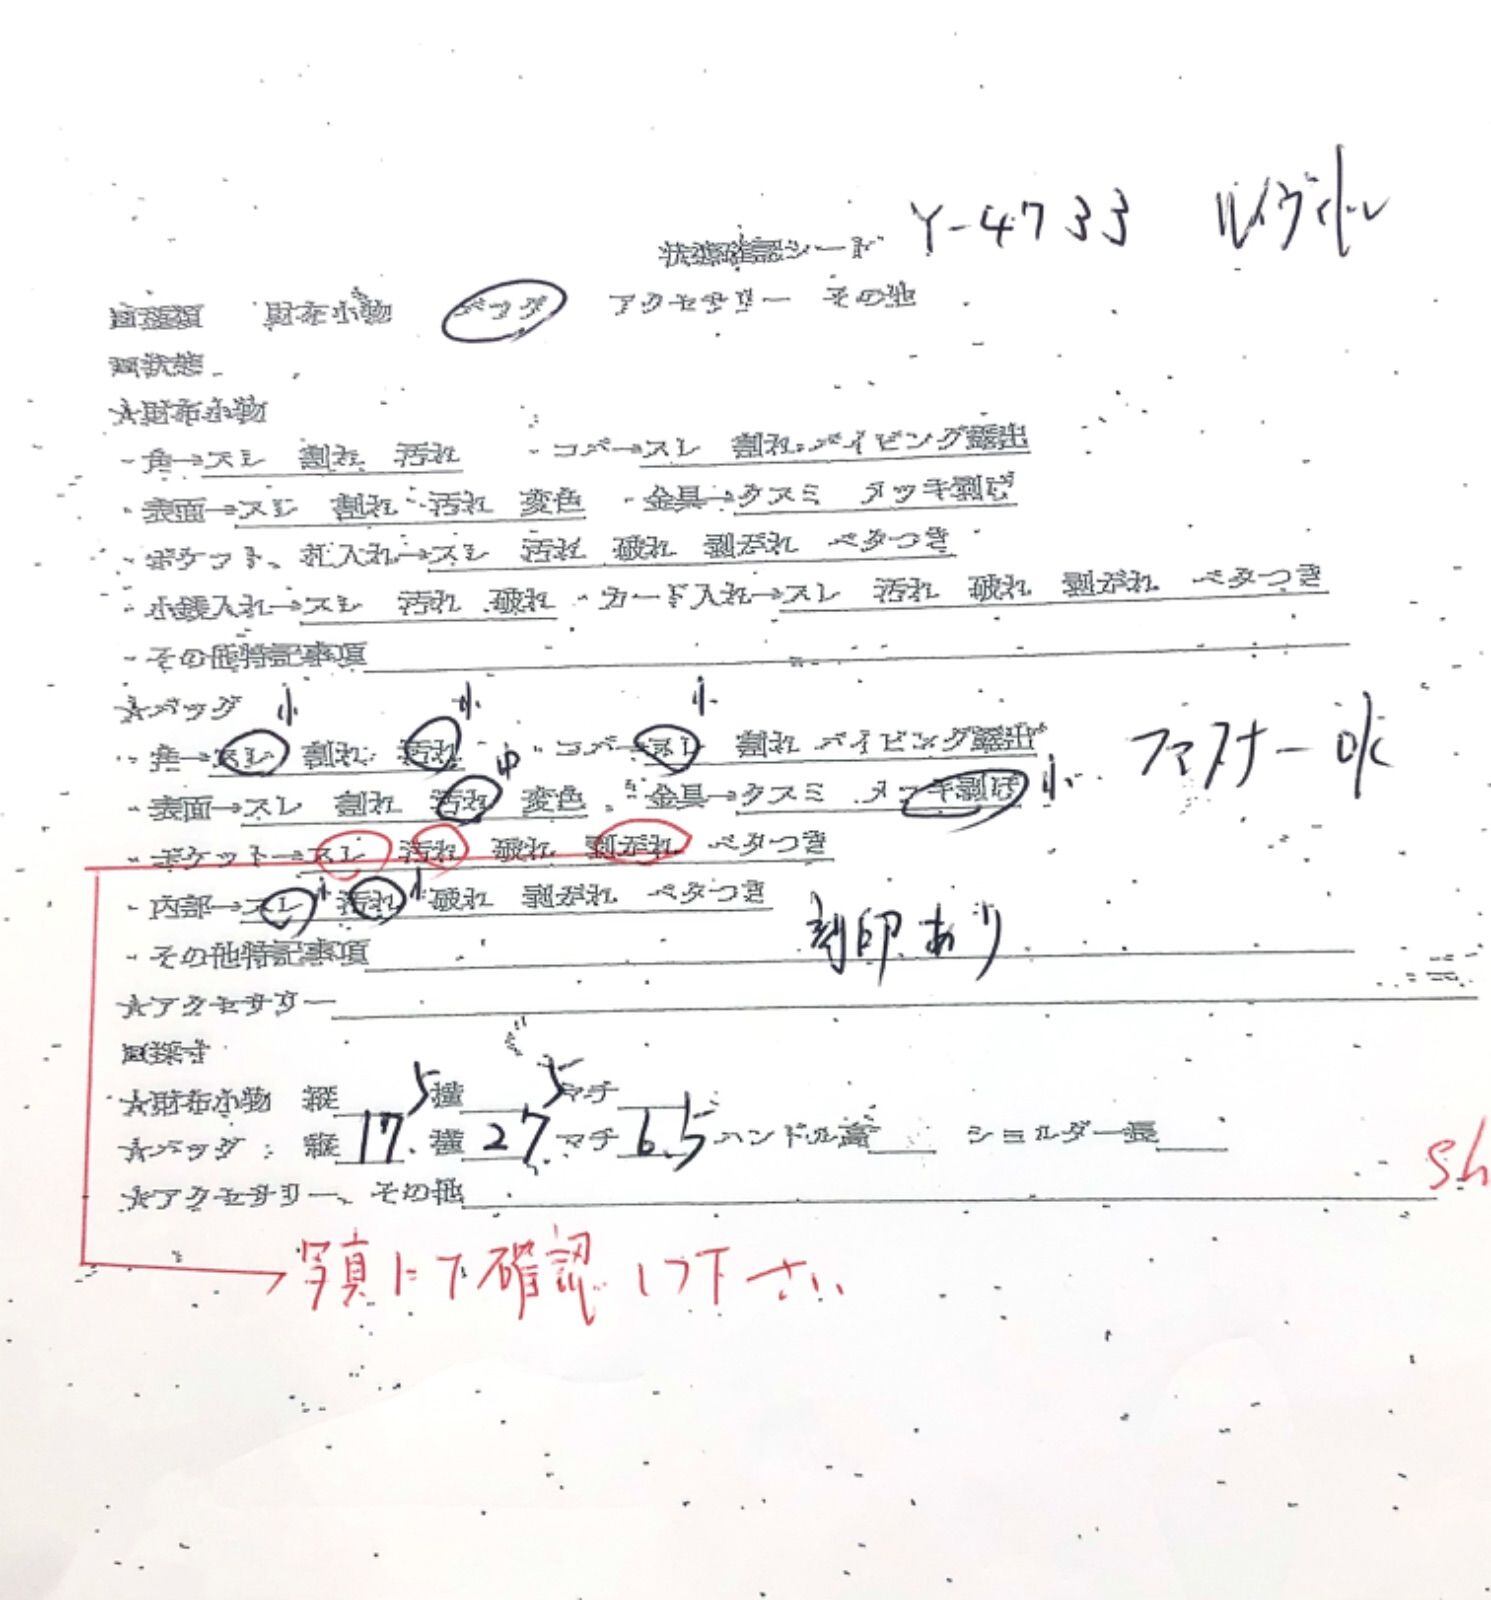 Y-4733 ルイヴィトン
状態確認シート
□種類 財布小物 バッグ アクセサリー その他
□状態
★財布小物
・角→スレ 割れ 汚れ ・コバ→スレ 割れ パイピング露出
・表面→スレ 割れ 汚れ 変色 ・金具→クスミ メッキ剥げ
・ポケット、札入れ→スレ 汚れ 破れ 剥がれ ベタつき
・小銭入れ→スレ 汚れ 破れ ・カード入れ→スレ 汚れ 破れ 剥がれ ベタつき
・その他特記事項
★バッグ 小 小 小
・角→スレ 割れ 汚れ ・コバ→スレ 割れ パイピング露出 ファスナーok
・表面→スレ 割れ 汚れ 中 変色 ・金具→クスミ メッキ剥げ 小
・ポケット→スレ 汚れ 破れ 剥がれ ベタつき
・内部→スレ 小 汚れ 小 破れ 剥がれ ベタつき
・その他特記事項 刻印あり
★アクセサリー
□採寸
★財布小物 縦 横 マチ
★バッグ: 縦 17.5 横 27.5 マチ 6.5 ハンドル高 ショルダー長
★アクセサリー、その他
sh
写真にて確認して下さい